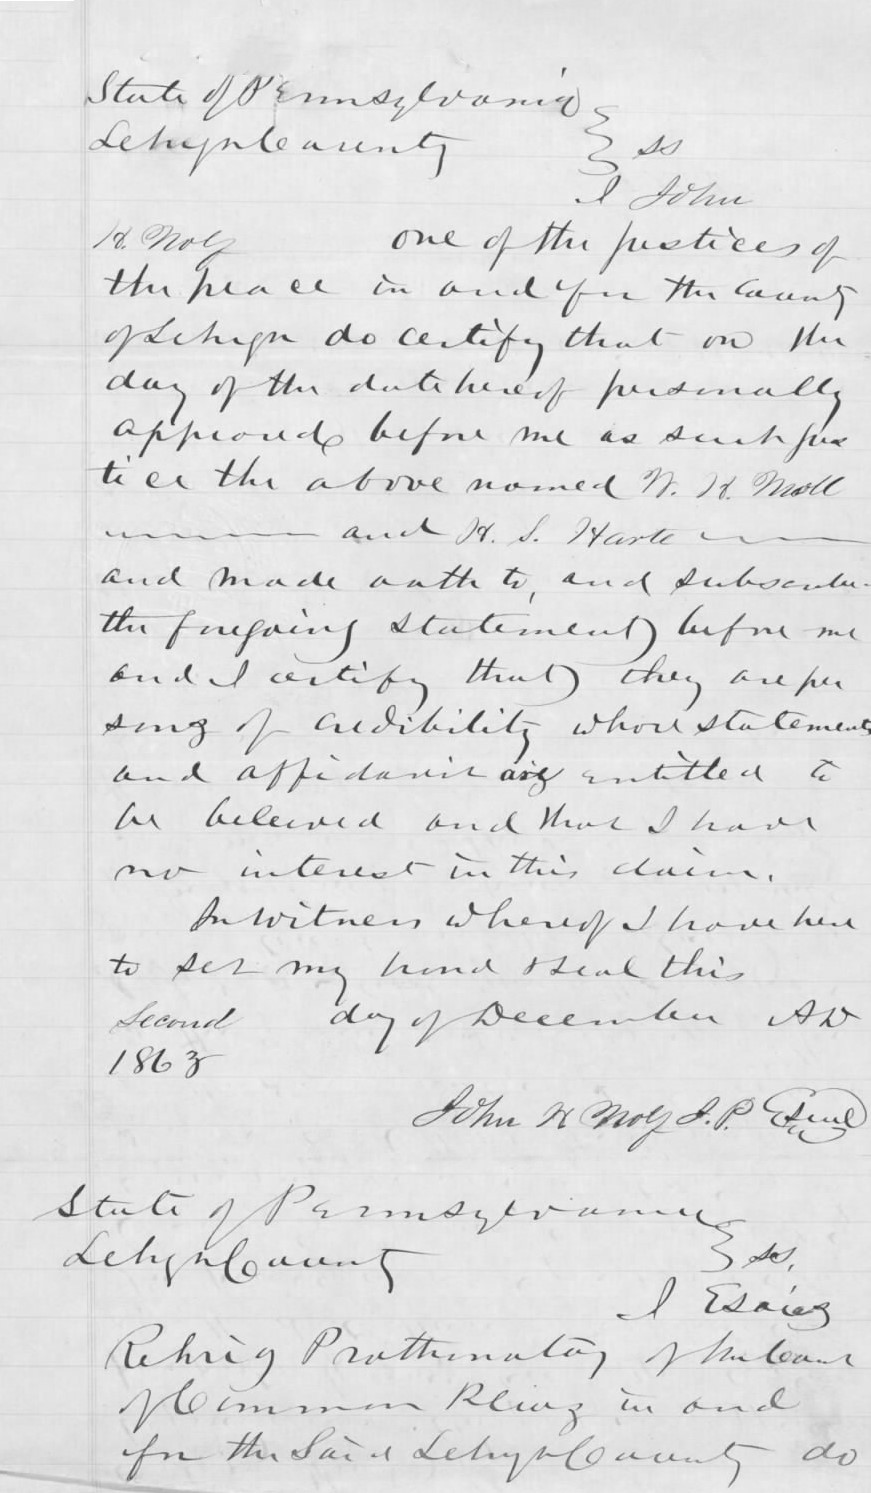 State of Pennsylvania
Lehigh County } ss
I John
H. Nolf one of the justices of
the peace in and for the County
of Lehigh do certify that on the
day of the date hereof personally
appeared before me as such jus
tice the above named W. H. Moll
and H. S. Harte
and made oath to, and subscribe
the foregoing statement before me
and I certify that they are per
sons of credibility whose statements
and affidavit are entitled to
be beleived and that I have
no interest in this claim.
In witness whereof I have here
to set my hand & seal this
second day of December AD
1863
John H Nolf J. P. Seal
State of Pennsylvania
Lehigh County } ss.
I Esaias
Rehrig Prothonotary of the Court
of Common Pleas in and
for the Said Lehigh County do